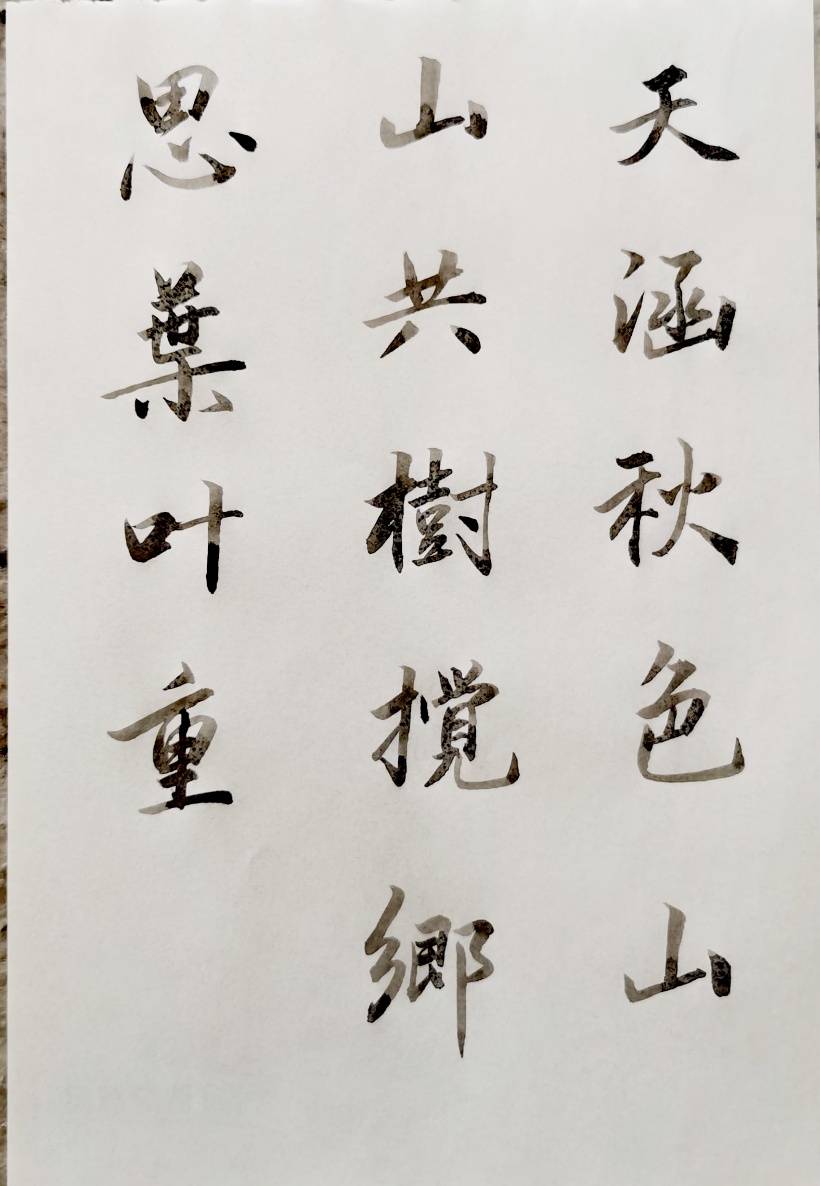 天涵秋色山
山共樹攪鄉
思葉叶重